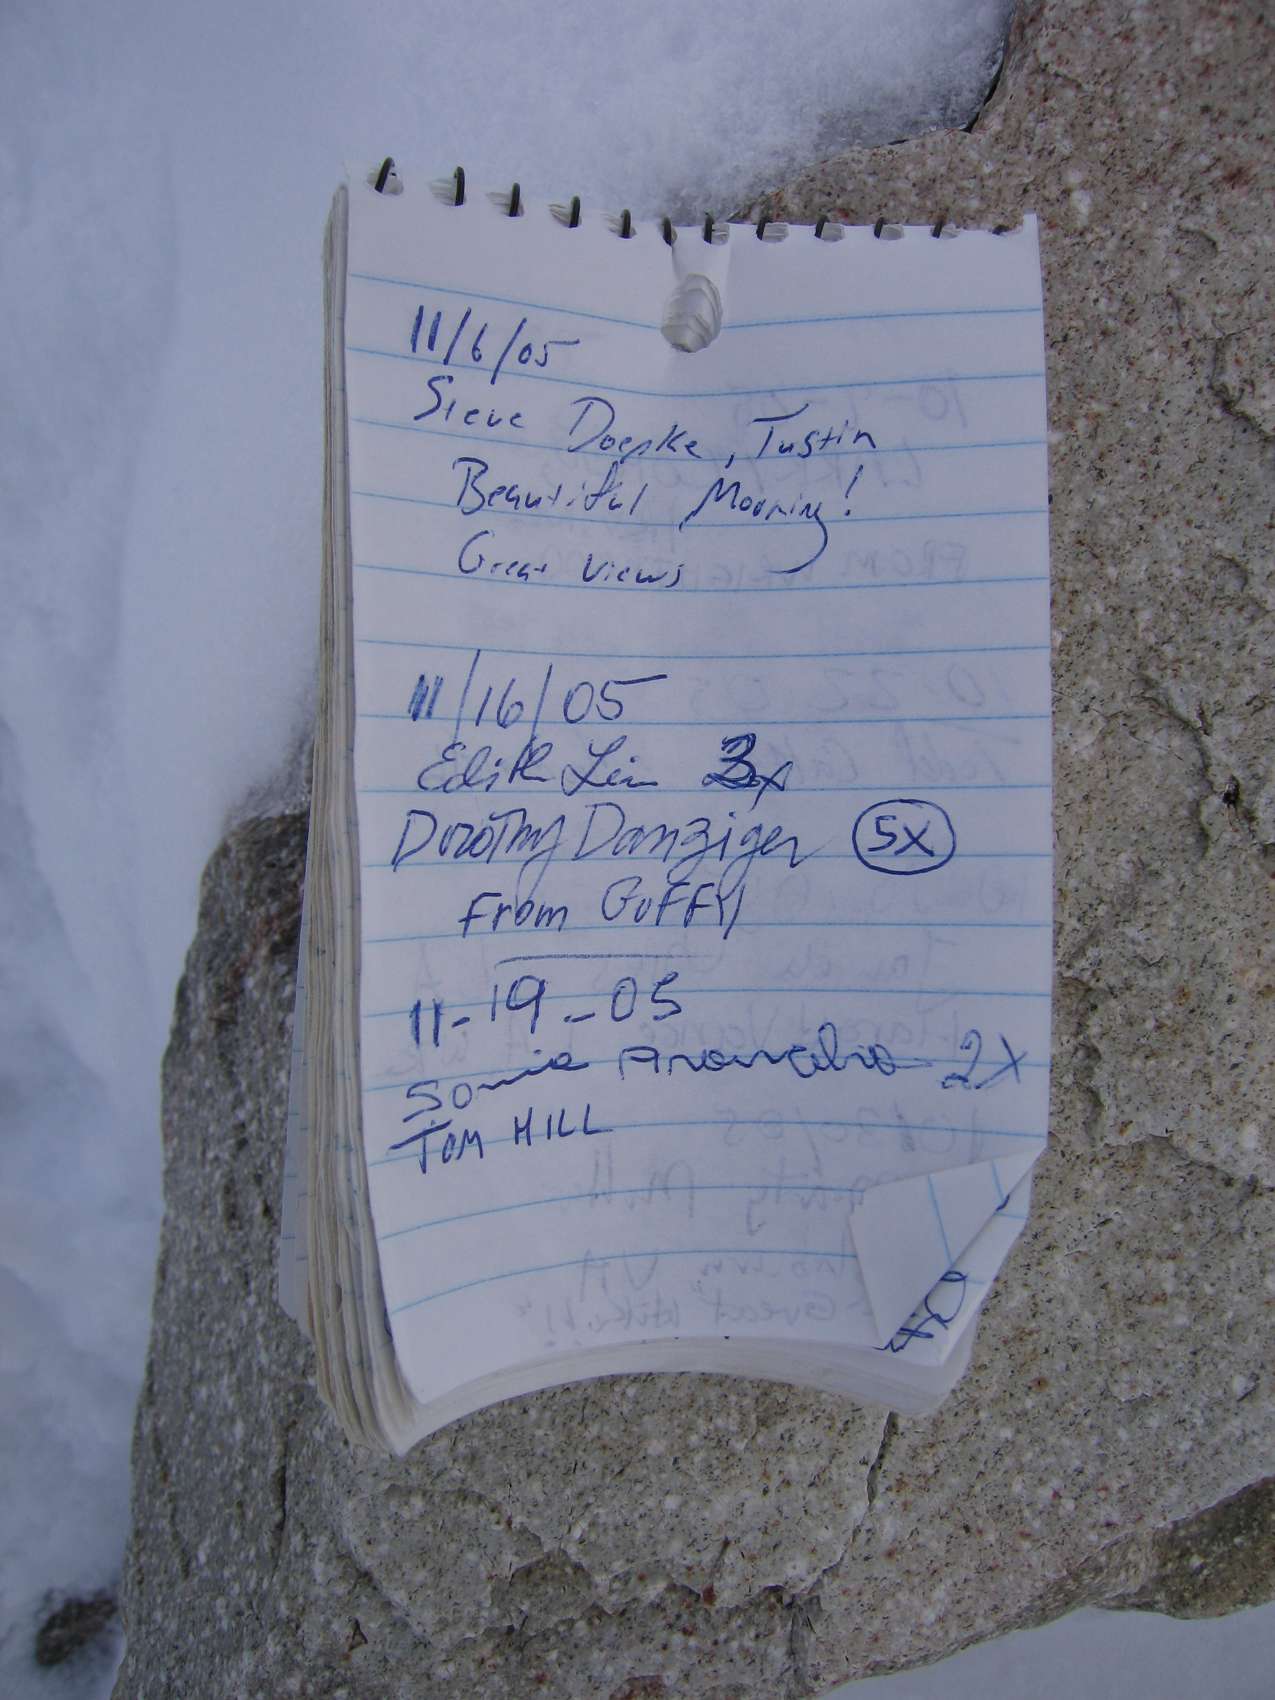 11/6/05
Steve Doepke, Tustin
Beautiful Morning!
Great Views
11/16/05
Edith Lin 3x
Dorothy Danziger 5X
From GUFFY
11-19-05
Sonia Arancibia 2X
TOM HILL